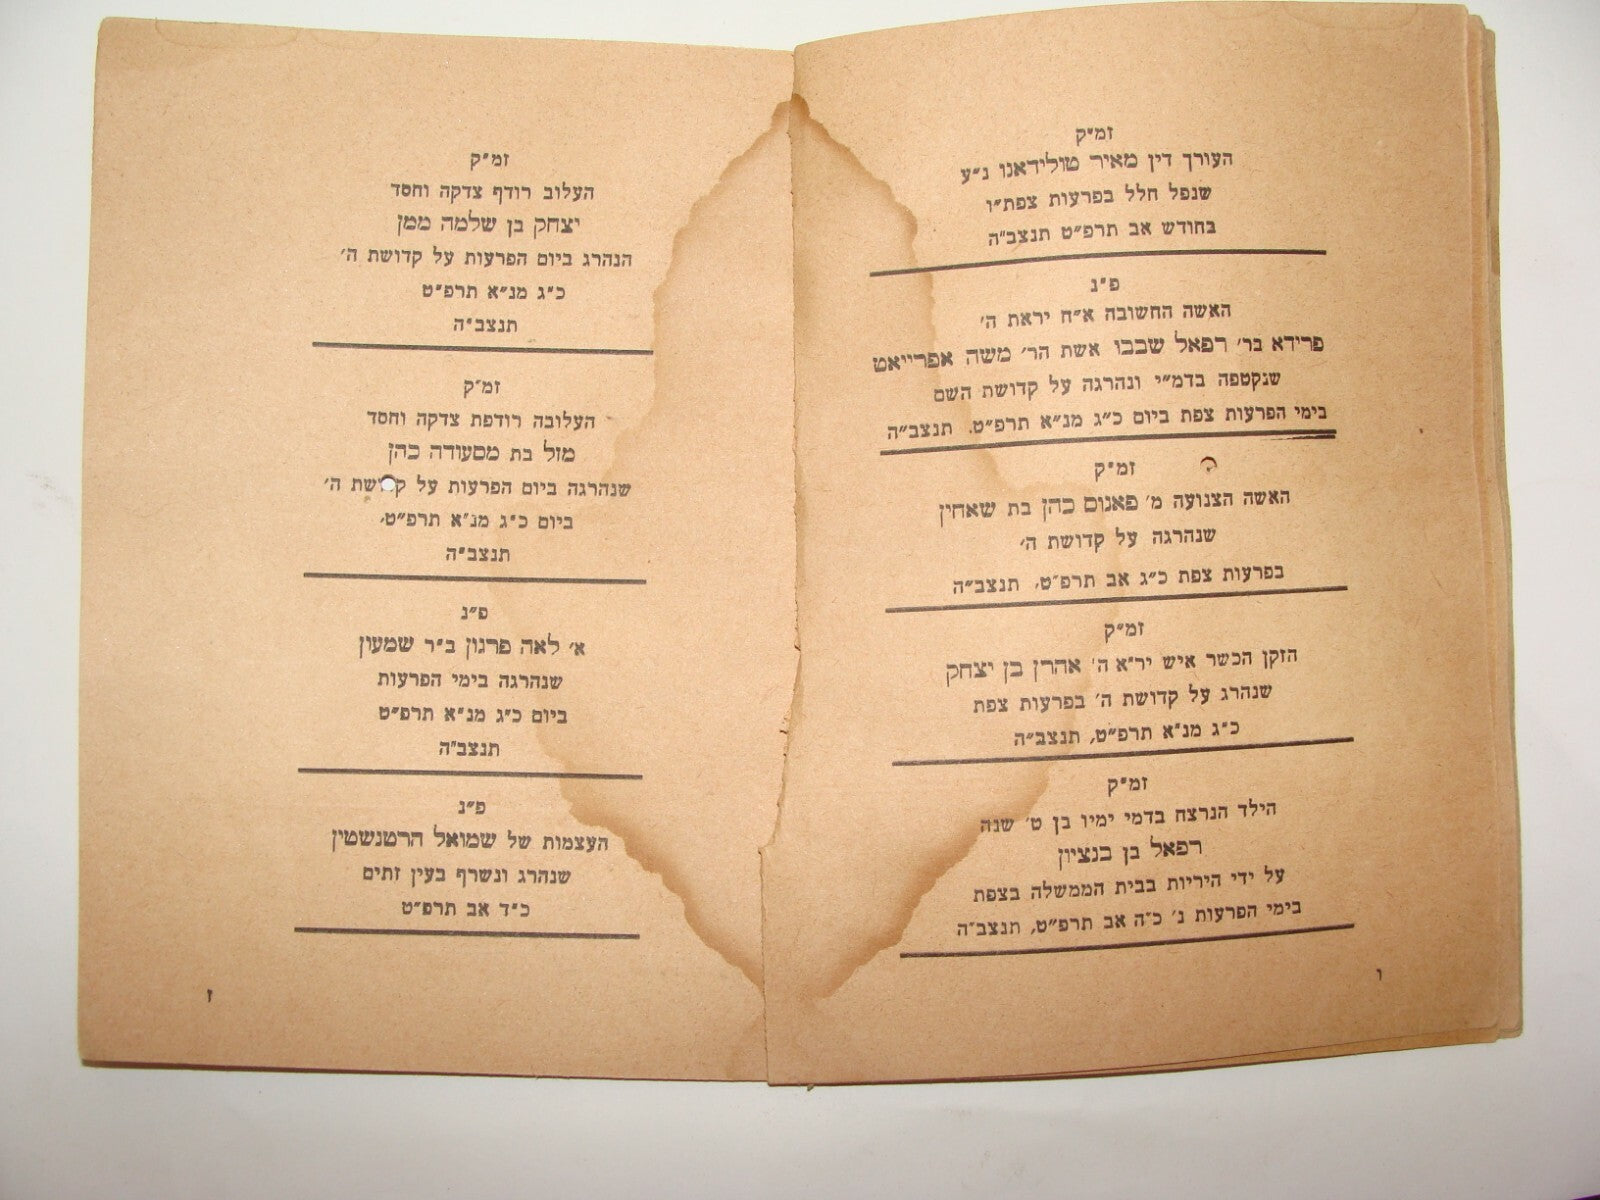 זמ״ק
העורך דין מאיר טולידאנו נ״ע
שנפל חלל בפרעות צפת״ו
בחודש אב תרפ״ט תנצב״ה
פ״נ
האשה החשובה א״ח יראת ה׳
פרידא בר׳ רפאל שבבו אשת הר׳ משה אפרייאט
שנקטפה בדמ״י ונהרגה על קדושת השם
בימי הפרעות צפת ביום כ״ג מנ״א תרפ״ט. תנצב״ה
זמ״ק
האשה הצנועה מ׳ פאנום כהן בת שאחין
שנהרגה על קדושת ה׳
בפרעות צפת כ״ג אב תרפ״ט, תנצב״ה
זמ״ק
הזקן הכשר איש יר״א ה׳ אהרן בן יצחק
שנהרג על קדושת ה׳ בפרעות צפת
כ״ג מנ״א תרפ״ט, תנצב״ה
זמ״ק
הילד הנרצח בדמי ימיו בן ט׳ שנה
רפאל בן בנציון
על ידי היריות בבית הממשלה בצפת
בימי הפרעות נ׳ כ״ה אב תרפ״ט, תנצב״ה
ו
זמ״ק
העלוב רודף צדקה וחסד
יצחק בן שלמה ממן
הנהרג ביום הפרעות על קדושת ה׳
כ״ג מנ״א תרפ״ט
תנצב״ה
זמ״ק
העלובה רודפת צדקה וחסד
מזל בת מסעודה כהן
שנהרגה ביום הפרעות על קדושת ה׳
ביום כ״ג מנ״א תרפ״ט,
תנצב״ה
פ״נ
א׳ לאה פרגון ב״ר שמעון
שנהרגה בימי הפרעות
ביום כ״ג מנ״א תרפ״ט
תנצב״ה
פ״נ
העצמות של שמואל הרטנשטין
שנהרג ונשרף בעין זתים
כ״ד אב תרפ״ט
ז